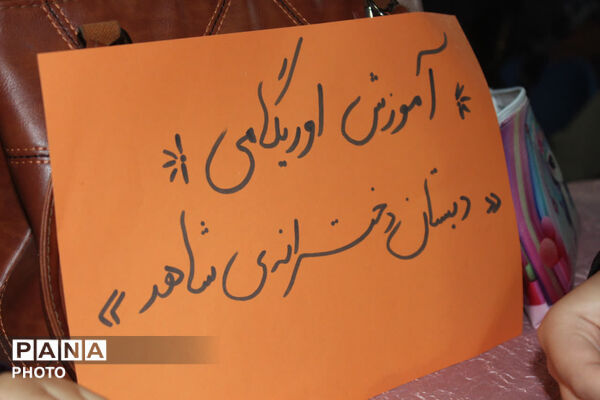 * آموزش اوریگامی *
« دبستان دخترانه‌ی شاهد »
PANA
PHOTO